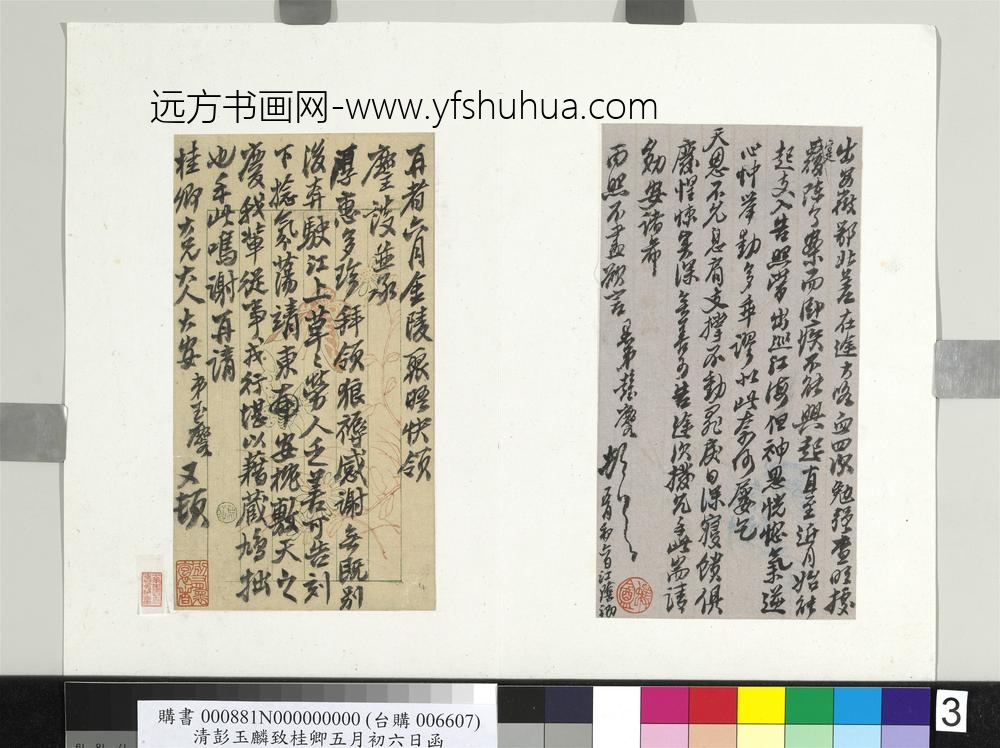 远方书画网-www.yfshuhua.com
出安徽鄂北差在途大咯血四次勉强查明據
實覆陳各案而卧疾不能興起直至近月始能
起文入告照常出巡江海但神思恍惚氣逆
心忡舉動多乖謬似此奈何屢乞
天恩不允息肩支撐不動日深寢饋俱
廢惶悚深無善可告途次撥冗手此耑請
勛安諸希
雨照不盡欲言 愚弟麐 頓 五月初六日江陰泐
再者六月金陵聚晤快領
麈談並承
厚惠多珍拜領狼褥感謝無既别
後奔駛江上草草勞人乏善可告刻
下捻氛蕩靖東南安枕敷天之
慶我輩從事戎行堪以藉藏鳩拙
也手此鳴謝再請
桂卿大兄大人大安 弟玉麐又頓
購書 000881N000000000 (台購 006607)
清彭玉麟致桂卿五月初六日函
3